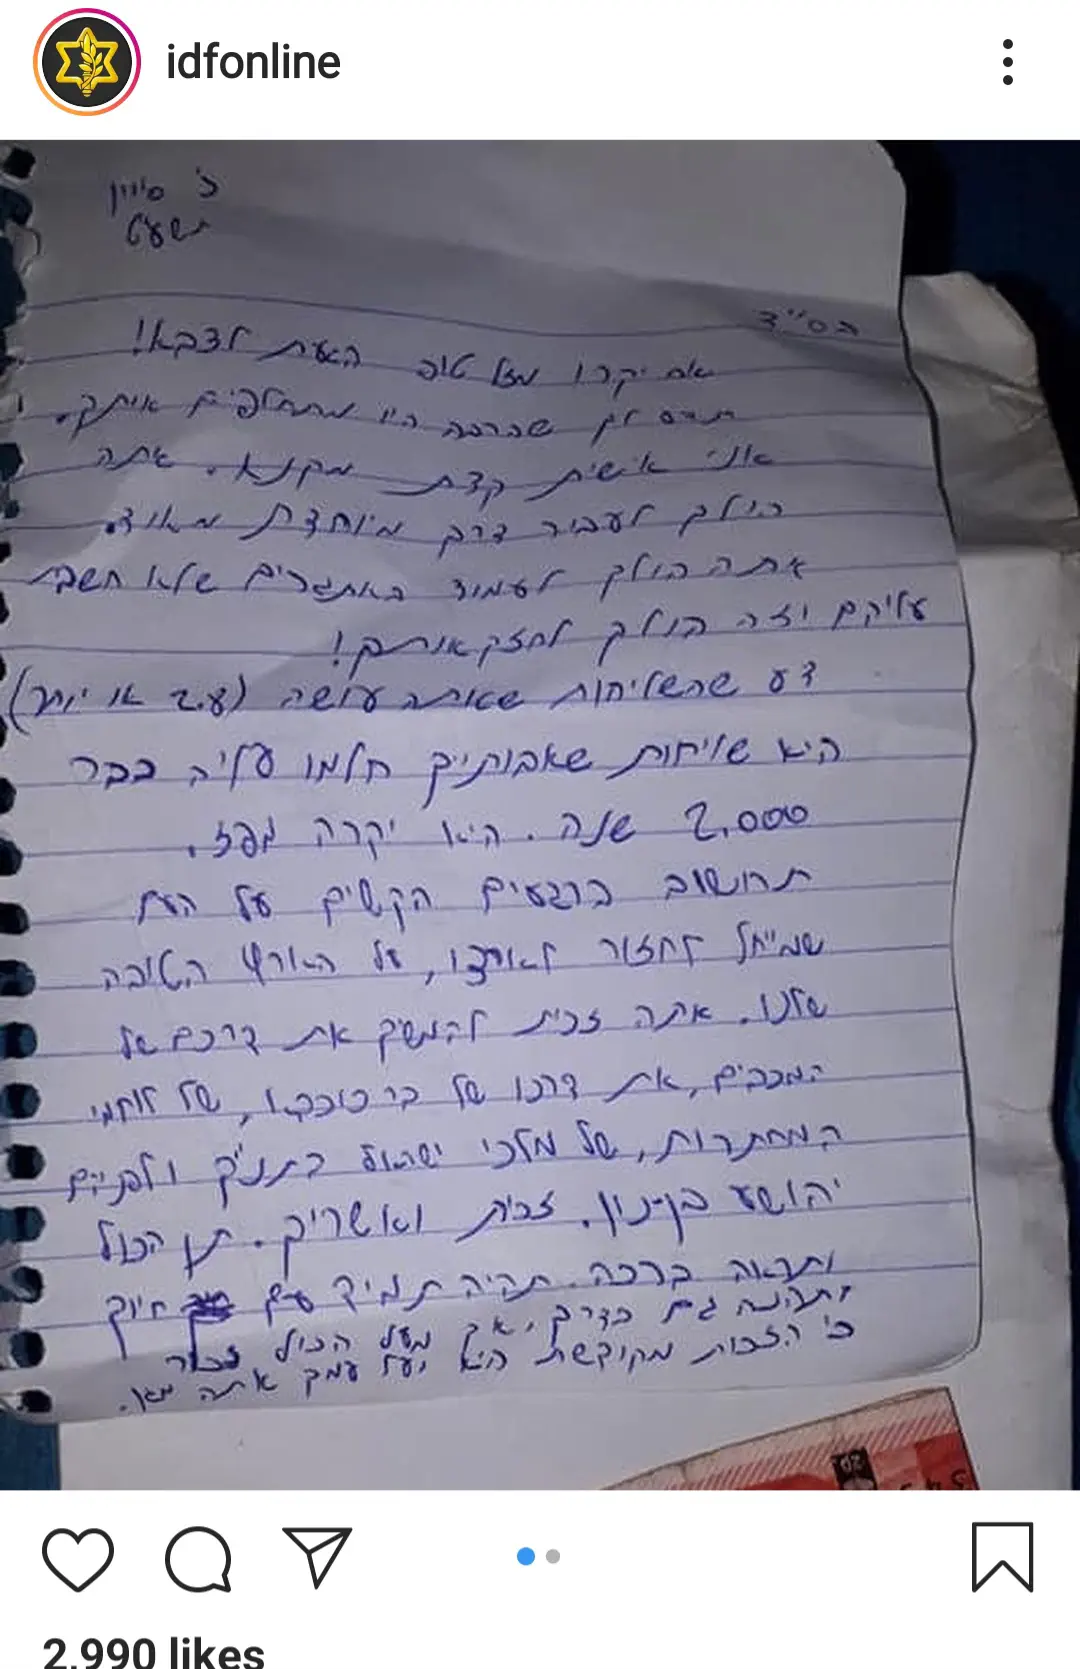 idfonline
כ' סיוון
תשע"ט
בס"ד
אח יקר! מזל טוב העת לצבא!
תדע לך שהרבה היו מתחלפים איתך.
אני אישית קצת מקנא. אתה
הולך לעבור דרך מיוחדת מאוד.
אתה הולך לעמוד באתגרים שלא חשבת
עליהם וזה הולך לחזק אותך!
דע שהשליחות שאתה עושה (ע.ל או יותר)
היא שליחות שאבותיך חלמו עליה כבר
2,000 שנה. היא יקרה מפז.
תחשוב ברגעים הקשים על העם
שמייחל לחזור לארצו, על הארץ הטובה
שלנו. אתה זכית להמשיך את דרכם של
המכבים, את דרכו של בר כוכבא, של לוחמי
המחתרות, של מלכי ישראל בתנ"ך ולפניהם
יהושע בן-נון. זכית ואשריך. תן הכול
ותראה ברכה. תהיה תמיד עם חיוך
ותהנה גם בדרך, אך מעל הכול זכור
כי הזכות מקודשת היא ועל עמך אתה מגן.
20
2,990 likes